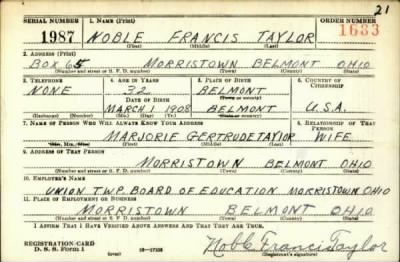 21
SERIAL NUMBER 1. NAME (Print) ORDER NUMBER
1987 NOBLE FRANCIS TAYLOR 1633
(First) (Middle) (Last)
2. ADDRESS (Print)
BOX 65 MORRISTOWN BELMONT OHIO
(Number and street or R. F. D. number) (Town) (County) (State)
3. TELEPHONE 4. AGE IN YEARS 5. PLACE OF BIRTH 6. COUNTRY OF CITIZENSHIP
NONE 32 BELMONT
DATE OF BIRTH (Town or county)
MARCH 1 1908 BELMONT U.S.A.
(Exchange) (Number) (Mo.) (Day) (Yr.) (State or country)
7. NAME OF PERSON WHO WILL ALWAYS KNOW YOUR ADDRESS 8. RELATIONSHIP OF THAT PERSON
MARJORIE GERTRUDE TAYLOR WIFE
(Mr., Mrs., Miss) (First) (Middle) (Last)
9. ADDRESS OF THAT PERSON
MORRISTOWN BELMONT OHIO
(Number and street or R. F. D. number) (Town) (County) (State)
10. EMPLOYER'S NAME
UNION TWP. BOARD OF EDUCATION MORRISTOWN OHIO
11. PLACE OF EMPLOYMENT OR BUSINESS
MORRISTOWN BELMONT OHIO
(Number and street or R. F. D. number) (Town) (County) (State)
I AFFIRM THAT I HAVE VERIFIED ABOVE ANSWERS AND THAT THEY ARE TRUE.
REGISTRATION CARD
D. S. S. Form 1 (over) 16-17105 Noble Francis Taylor
(Registrant's signature)